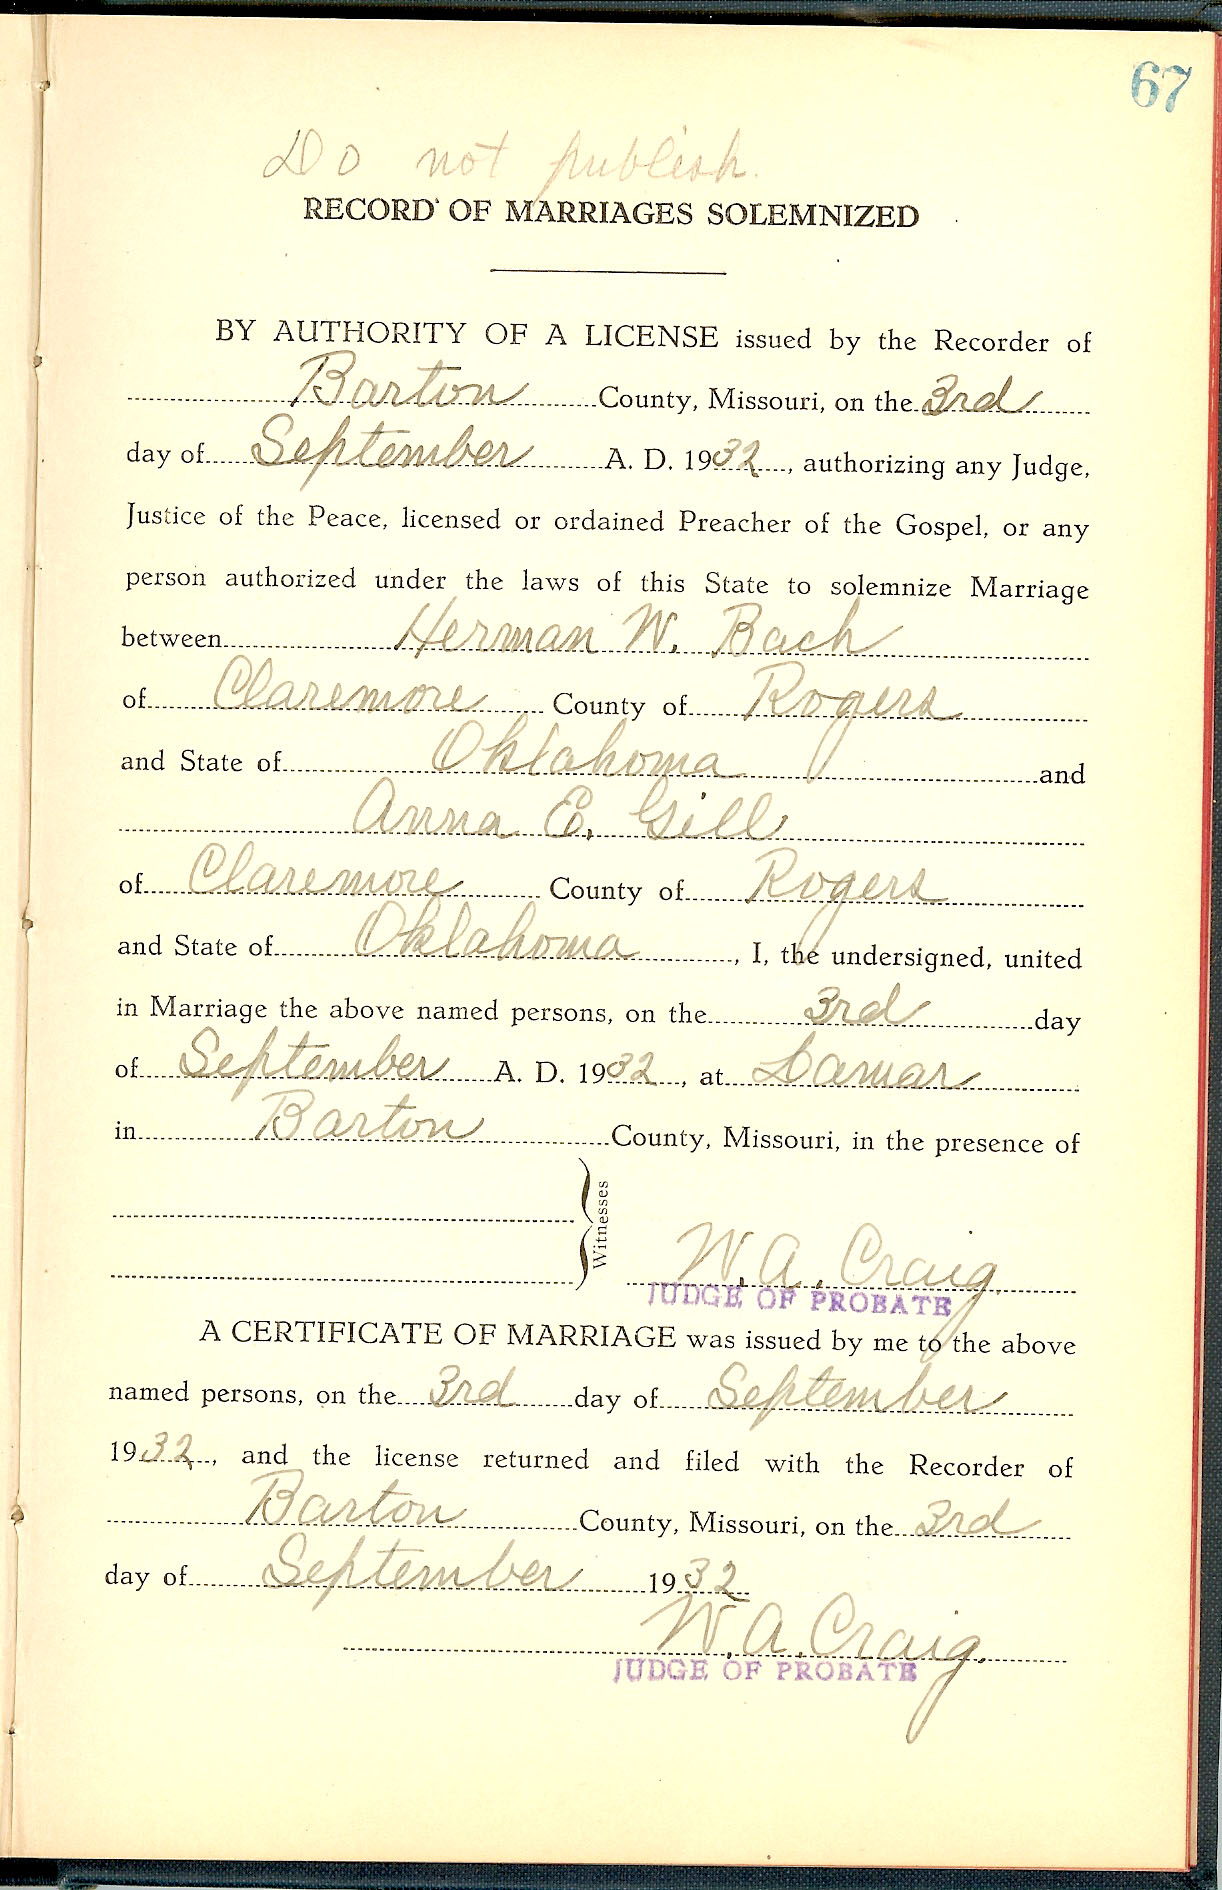 67
Do not publish.
RECORD OF MARRIAGES SOLEMNIZED
BY AUTHORITY OF A LICENSE issued by the Recorder of
Barton County, Missouri, on the 3rd
day of September A. D. 1932, authorizing any Judge,
Justice of the Peace, licensed or ordained Preacher of the Gospel, or any
person authorized under the laws of this State to solemnize Marriage
between Herman W. Bach
of Claremore County of Rogers
and State of Oklahoma and
Anna E. Gill
of Claremore County of Rogers
and State of Oklahoma, I, the undersigned, united
in Marriage the above named persons, on the 3rd day
of September A. D. 1932, at Lamar
in Barton County, Missouri, in the presence of
Witnesses
W. A. Craig.
JUDGE OF PROBATE
A CERTIFICATE OF MARRIAGE was issued by me to the above
named persons, on the 3rd day of September
1932, and the license returned and filed with the Recorder of
Barton County, Missouri, on the 3rd
day of September 1932
W. A. Craig.
JUDGE OF PROBATE